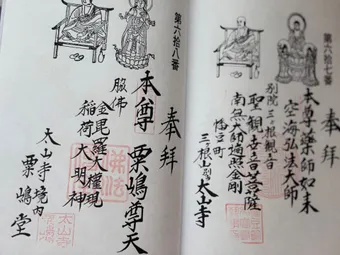 第六拾七番
奉拝
本尊薬師如来
空海弘法大師
別院三ヶ根観音
聖観世音菩薩
南無大師遍照金剛
幡豆町
三ヶ根山 太山寺
第六拾八番
奉拝
本尊 粟嶋尊天
脇佛
金毘羅大権現
稲荷大明神
太山寺境内
粟嶋堂